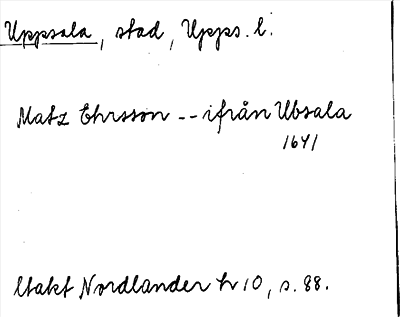 Uppsala, stad, Upps. l.
Matz Ehrsson -- ifrån Ubsala
1641
Utakt Nordlander hr 10, s. 88.